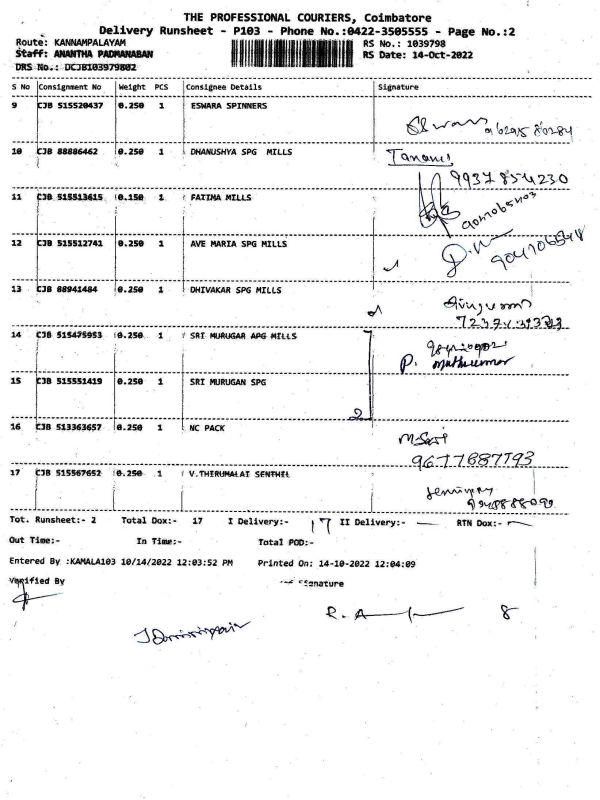 THE PROFESSIONAL COURIERS, Coimbatore
Delivery Runsheet - P103 - Phone No.:0422-3505555 - Page No.:2
Route: KANNAMPALAYAM RS No.: 1039798
Staff: ANANTHA PADMANABAN RS Date: 14-Oct-2022
DRS No.: DCJB103979802
S No Consignment No Weight PCS Consignee Details Signature
9 CJB 515520437 0.250 1 ESWARA SPINNERS
10 CJB 88886462 0.250 1 DHANUSHYA SPG MILLS
9937854230
11 CJB 515513615 0.150 1 FATIMA MILLS
12 CJB 515512741 0.250 1 AVE MARIA SPG MILLS
13 CJB 88941484 0.250 1 DHIVAKAR SPG MILLS
14 CJB 515475953 0.250 1 SRI MURUGAR APG MILLS
P. Muthukumar
15 CJB 515551419 0.250 1 SRI MURUGAN SPG
2
16 CJB 513363657 0.250 1 NC PACK
9677687793
17 CJB 515567652 0.250 1 V.THIRUMALAI SENTHIL
Tot. Runsheet:- 2 Total Dox:- 17 I Delivery:- 17 II Delivery:- — RTN Dox:- —
Out Time:- In Time:- Total POD:-
Entered By :KAMALA103 10/14/2022 12:03:52 PM Printed On: 14-10-2022 12:04:09
Verified By Signature
R. A 8